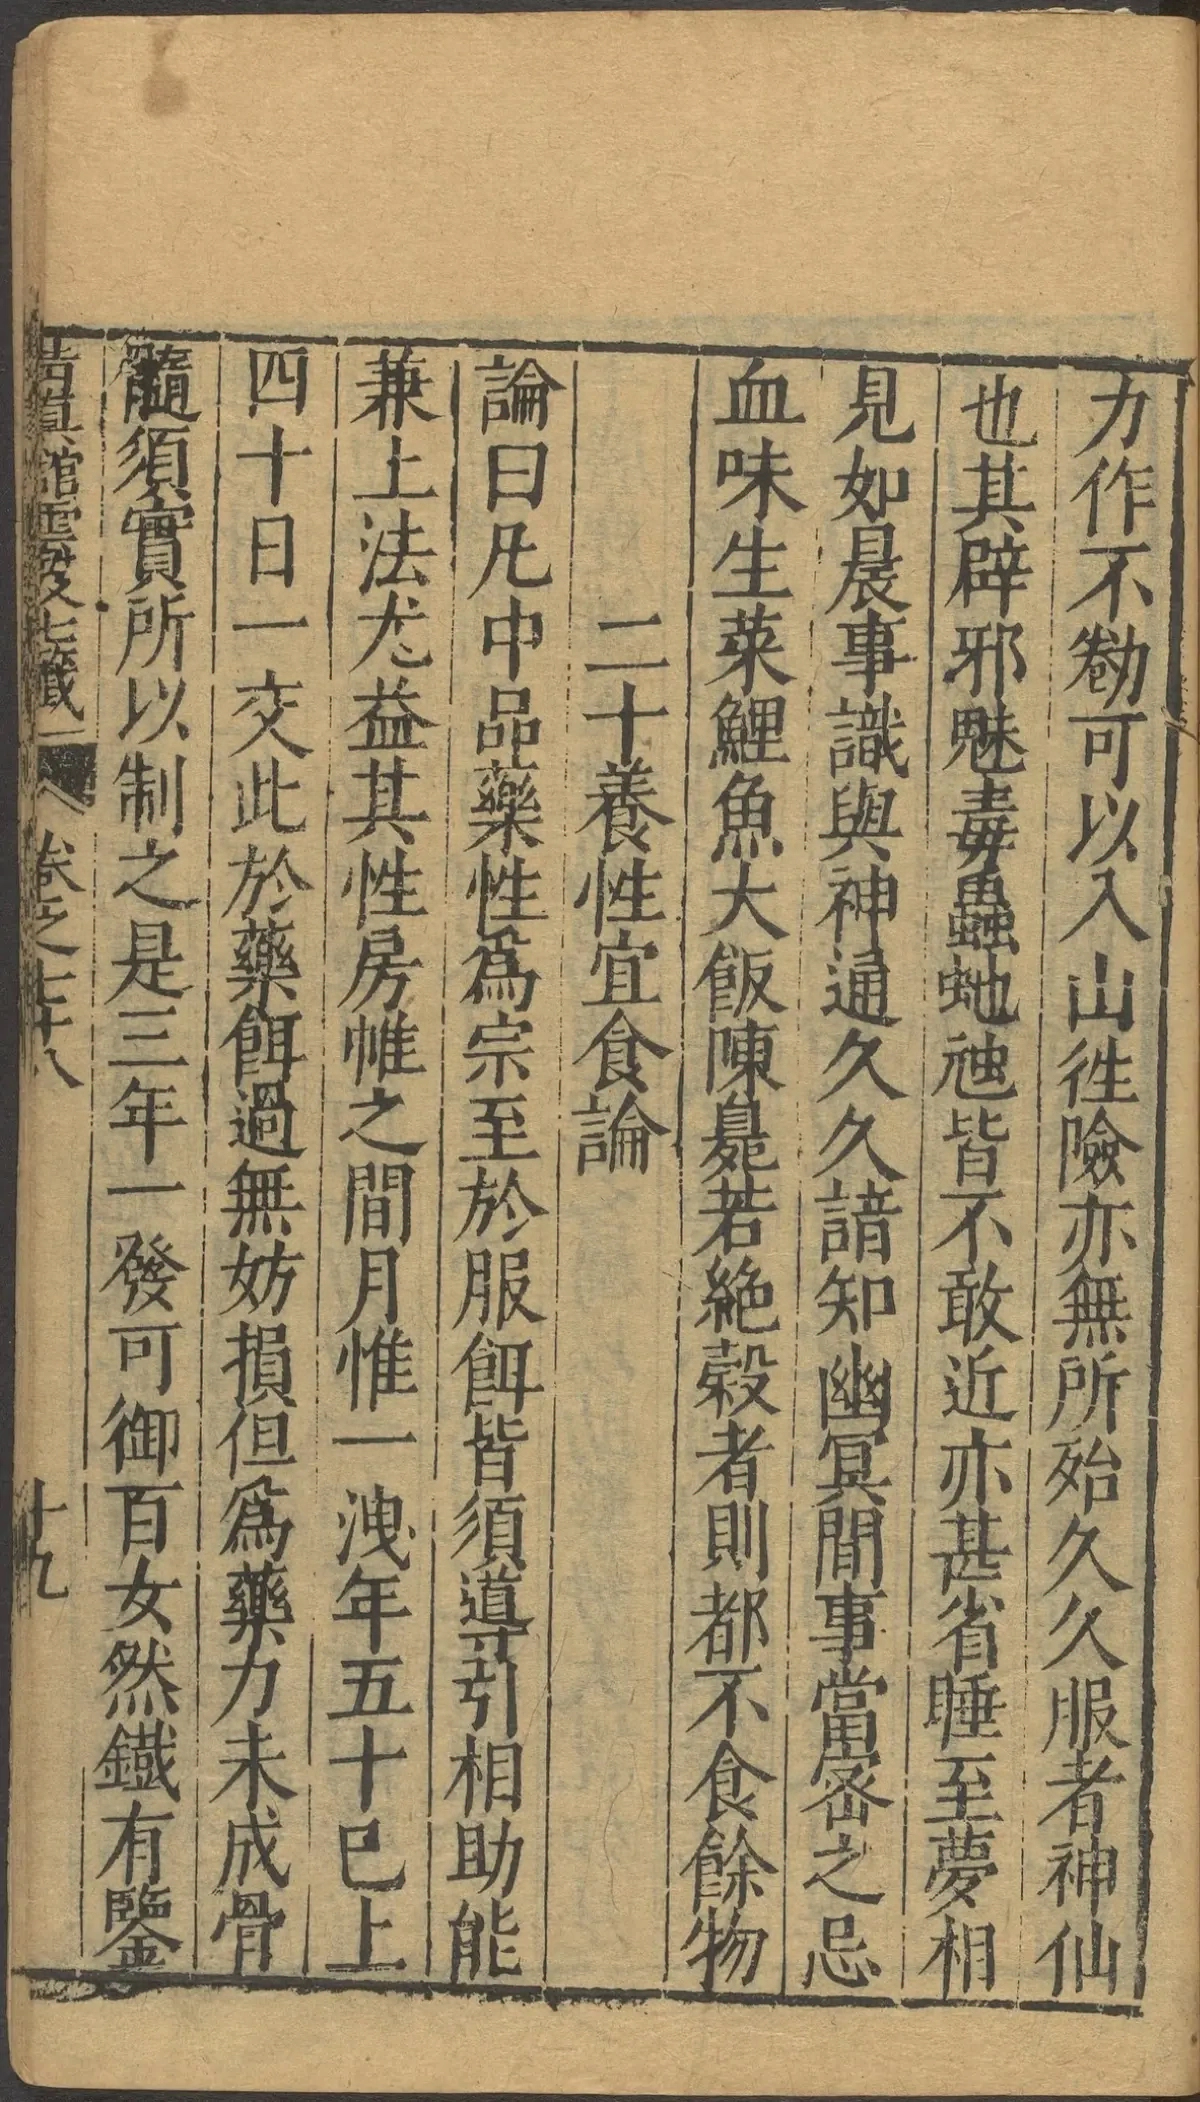 力作不勌可以入山徃險亦無所殆久久服者神仙
也其辟邪魅毒蟲虵虺皆不敢近亦甚省睡至夢相
見如晨事識與神通久久諳知幽冥間事當密之忌
血味生菜鯉魚大飯陳臰若絶穀者則都不食餘物
二十養性宜食論
論曰凡中品藥性爲宗至於服餌皆須導引相助能
兼上法尤益其性房帷之間月惟一洩年五十已上
四十日一交此於藥餌過無妨損但爲藥力未成骨
髓須實所以制之是三年一發可御百女然鐵有鑒
清真館雲笈七籤 卷之七十八 十九